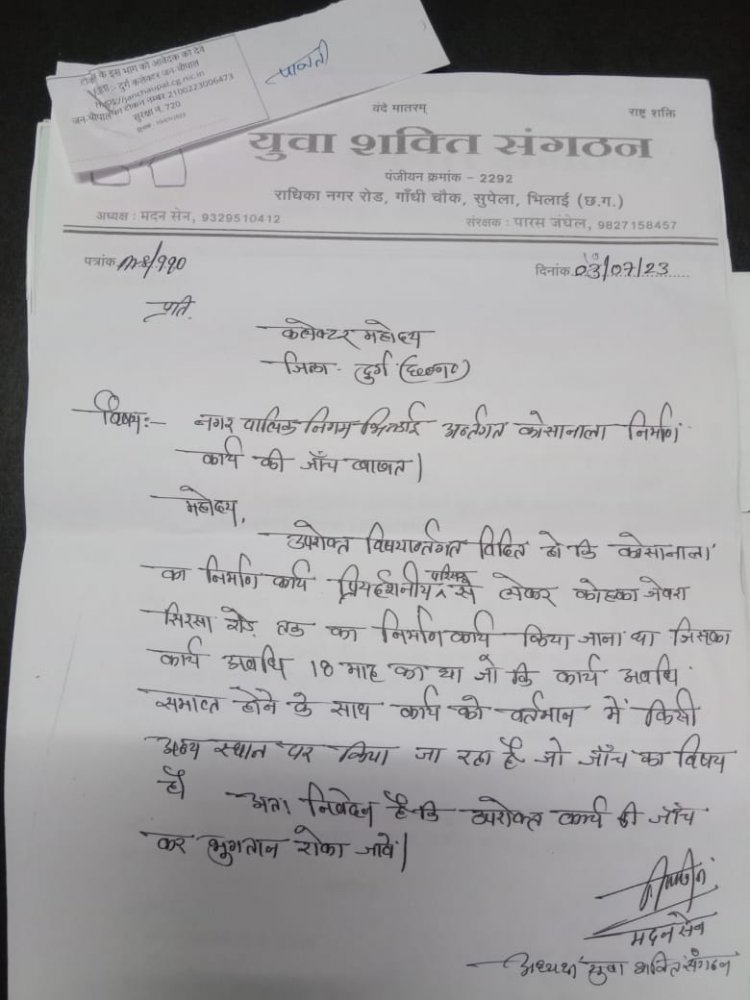 टोकन के इस भाग को आवेदक को देवे
दुर्ग कलेक्टर जन-चौपाल
https://janchaupal.cg.nic.in
जन-चौपाल का टोकन नम्बर 2100223006473
सुरक्षा न. 720
पावती
वंदे मातरम्
राष्ट्र शक्ति
युवा शक्ति संगठन
पंजीयन क्रमांक - 2292
राधिका नगर रोड, गाँधी चौक, सुपेला, भिलाई (छ.ग.)
अध्यक्ष : मदन सेन, 9329510412
संरक्षक : पारस जंघेल, 9827158457
पत्रांक
दिनांक 03/07/23
प्रति,
कलेक्टर महोदय
जिला - दुर्ग (छ०ग०)
विषय:- नगर पालिक निगम भिलाई अर्न्तगत कोसानाला निर्माण
कार्य की जाँच बाबत।
महोदय,
उपरोक्त विषयार्न्तगत विदित हो कि कोसानाला
का निर्माण कार्य प्रियदर्शनीय परिसर से लेकर कोहका जेवरा
सिरसा रोड़ तक का निर्माण कार्य किया जाना था जिसका
कार्य अवधि 18 माह का था जो कि कार्य अवधि
समाप्त होने के साथ कार्य को वर्तमान में किसी
अन्य स्थान पर किया जा रहा है जो जाँच का विषय
है। अतः निवेदन है कि उपरोक्त कार्य की जाँच
कर भुगतान रोका जावे।
मदन सेन
अध्यक्ष युवा शक्ति संगठन